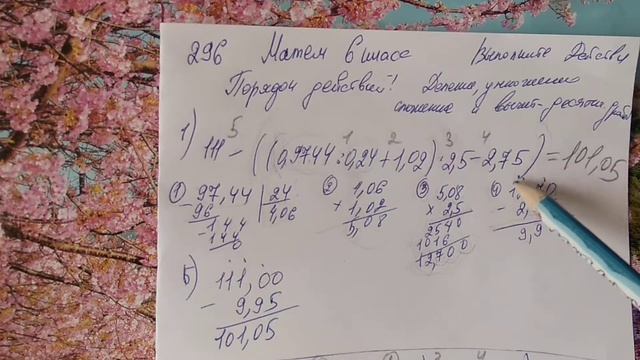 296 Матем 6 класс Выполните Действи
Порядок действий! Деление, умножение
сложение и вычит- десятич. дроб
5 1 2 3 4
1) 111 - ((0,9744 : 0,24 + 1,02) · 2,5 - 2,75) = 101,05
① 97,44 24 ② 4,06 ③ 5,08 ④
- 96 4,06 + 1,02 × 2,5 - 2,
144 5,08 2540 9,9
144 1016
0 12,700
5) 111,00
- 9,95
101,05